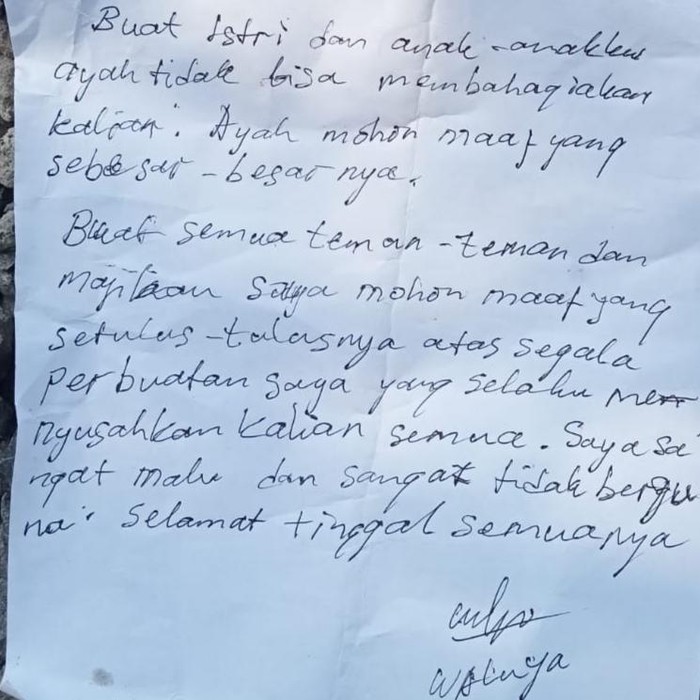 Buat Istri dan anak-anakku
ayah tidak bisa membahagiakan
kalian. Ayah mohon maaf yang
sebesar-besarnya.
Buat semua teman-teman dan
majikan saya mohon maaf yang
setulus-tulusnya atas segala
perbuatan saya yang selalu me
nyusahkan kalian semua. Saya sa
ngat malu dan sangat tidak bergu
na. Selamat tinggal semuanya
Waluya